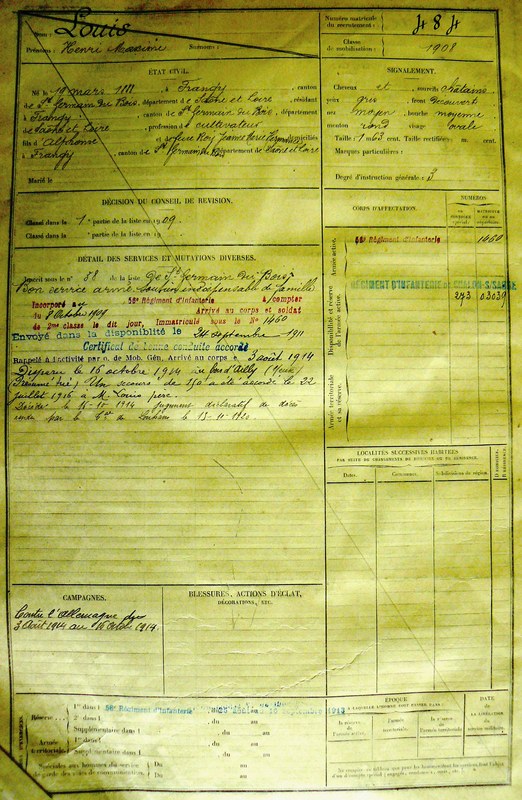 Nom : Louis
Prénoms : Henri Maxime Surnoms :
Numéro matricule du recrutement : 484
Classe de mobilisation : 1908
ÉTAT CIVIL.
Né le 19 mars 1888, à Frangy, canton
de St Germain du Bois, département de Saône et Loire, résidant
à Frangy, canton de St Germain du Bois, département
de Saône et Loire, profession de cultivateur
fils d'Alphonse et de domiciliés
à Frangy, canton de St Germain du Bois, département de Saône et Loire
Marié le
SIGNALEMENT.
Cheveux et sourcils châtains
yeux gris, front découvert
nez moyen, bouche moyenne
menton rond, visage ovale
Taille : 1 m. cent. Taille rectifiée : m. cent.
Marques particulières :
Degré d'instruction générale : 3
DÉCISION DU CONSEIL DE REVISION.
Classé dans la 1e partie de la liste en 1909.
Classé dans la e partie de la liste en 19
CORPS D'AFFECTATION.
NUMÉROS
Armée active.
56e Régiment d'Infanterie
1460
Disponibilité et réserve de l'armée active.
RÉGIMENT D'INFANTERIE DE CHALON-S/SAÔNE
273 03039
Armée territoriale et sa réserve.
DÉTAIL DES SERVICES ET MUTATIONS DIVERSES.
Inscrit sous le n° 58 de la liste de St Germain du Bois
Bon service armé Soutien indispensable de famille
Incorporé au 56e Régiment d'Infanterie à compter
du 8 Octobre 1909 Arrivé au corps et soldat
de 2me classe le dit jour, Immatriculé sous le N° 1460
Envoyé dans la disponibilité le 24 septembre 1911
Certificat de bonne conduite accordé
Rappelé à l'activité par o. de Mob. Gén. Arrivé au corps le 3 août 1914
Disparu le 16 octobre 1914 au bois d'Ailly (Meuse)
Présumé tué) Un secours de 150 a été accordé le 22
juillet 1916 à M. Louis père.
Décédé le 16-10-1914 Jugement déclaratif de décès
rendu par le de Louhans le 13-11-1920.
LOCALITÉS SUCCESSIVES HABITÉES
PAR SUITE DE CHANGEMENTS DE DOMICILE OU DE RÉSIDENCE.
Dates. Communes. Subdivisions de région.
CAMPAGNES.
Contre l'Allemagne du
3 Août 1914 au 16 Octobre 1914.
BLESSURES, ACTIONS D'ÉCLAT,
DÉCORATIONS, ETC.
Réserve
1re dans l 56e Régiment d'Infanterie septembre 1913
2e dans l , du au
Supplémentaire dans l , du au
Armée territoriale
1re dans l , du au
Supplémentaire dans l , du au
Spéciales aux hommes du service de garde des voies de communication.
Du au
Du au
ÉPOQUE
À LAQUELLE L'HOMME DOIT PASSER DANS :
la réserve de l'armée active.
l'armée territoriale.
la réserve de l'armée territoriale.
DATE
DE LA LIBÉRATION DU service militaire.